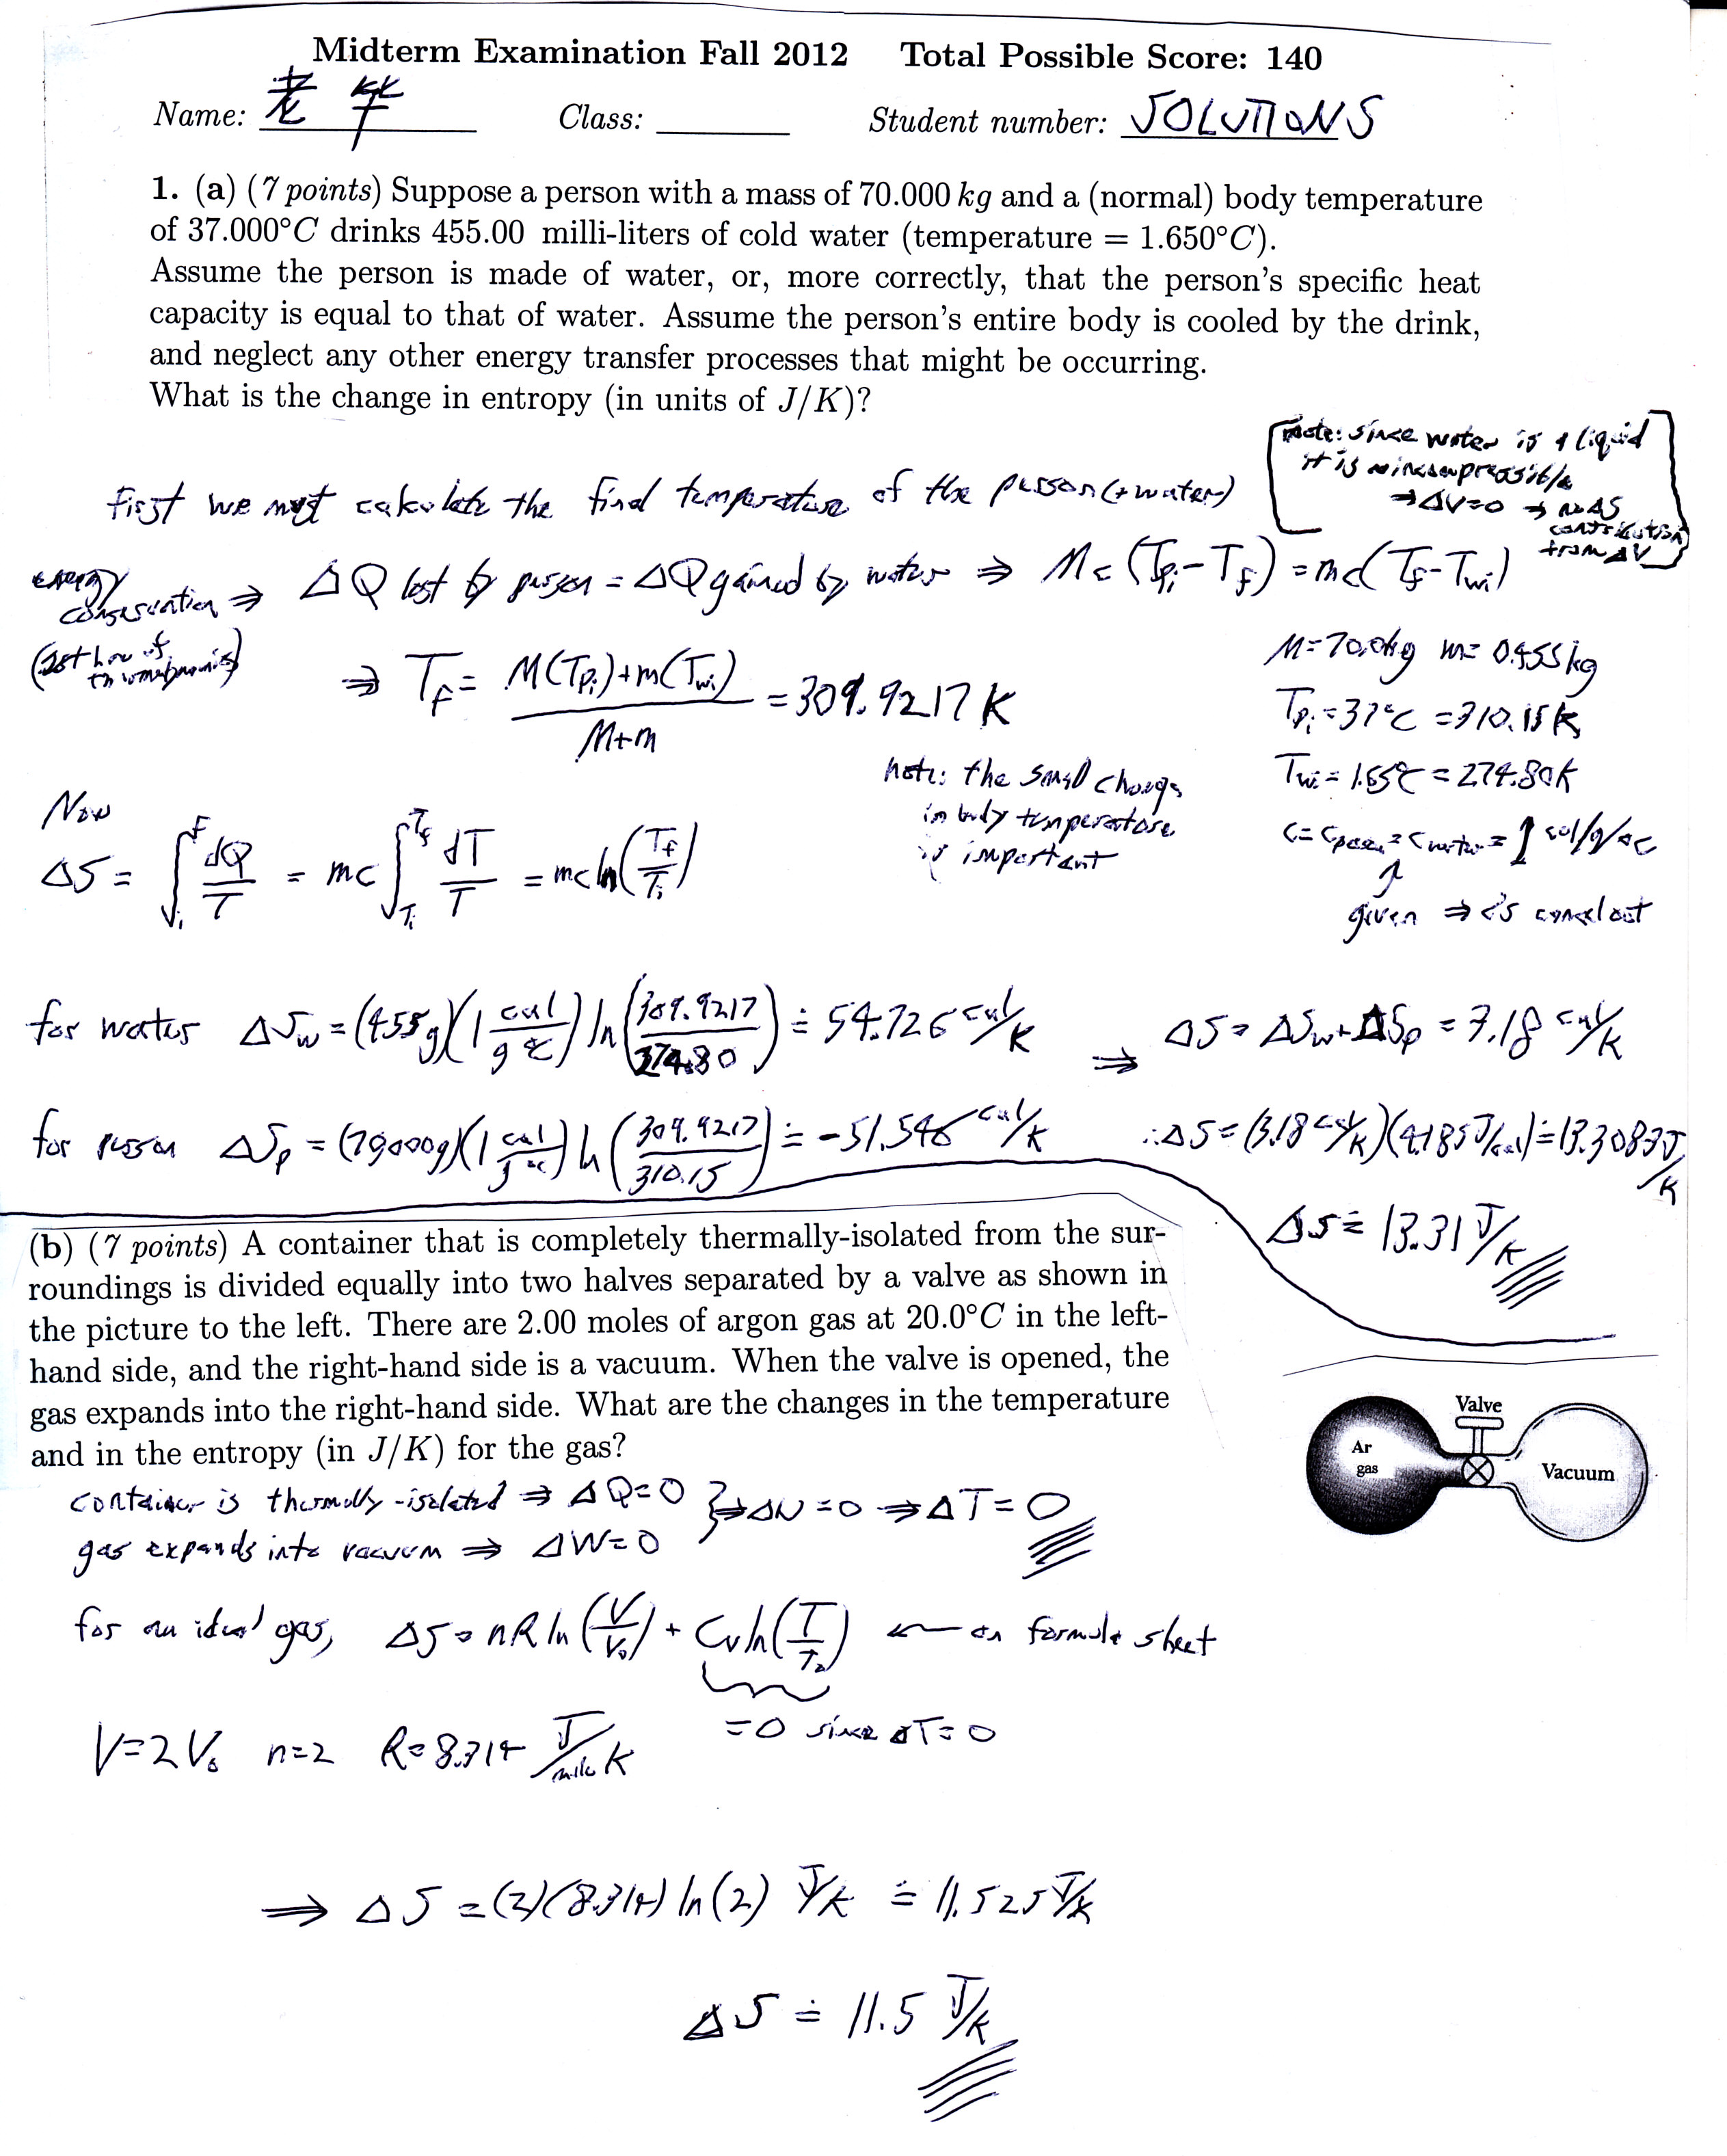 Midterm Examination Fall 2012 Total Possible Score: 140
Name: 老 Class: Student number: SOLUTIONS
1. (a) (7 points) Suppose a person with a mass of 70.000 kg and a (normal) body temperature
of 37.000°C drinks 455.00 milli-liters of cold water (temperature = 1.650°C).
Assume the person is made of water, or, more correctly, that the person's specific heat
capacity is equal to that of water. Assume the person's entire body is cooled by the drink,
and neglect any other energy transfer processes that might be occurring.
What is the change in entropy (in units of J/K)?
[note: since water is a liquid
it is incompressible
⇒ΔV=0 ⇒ no ΔS
contribution
from ΔV]
first we must calculate the final temperature of the person (+water)
energy
conservation ⇒ ΔQ lost by person = ΔQ gained by water ⇒ Mc(Tpi-Tf) = mc(Tf-Twi)
(1st law of
thermodynamics)
⇒ Tf = M(Tpi)+m(Twi) / M+m = 309.9217 K
M=70.0kg m=0.455kg
Tpi=37°C =310.15K
Twi=1.65°C = 274.80K
c=cperson=cwater=1 cal/g/°C
given ⇒ c is constant
note: the small change
in body temperature
is important
Now
ΔS = ∫_i^f dQ/T = mc ∫_Ti^Tf dT/T = mc ln(Tf/Ti)
for water ΔSw = (455g)(1 cal/g°C) ln(309.9217/274.80) ≐ 54.726 cal/K
⇒ ΔS = ΔSw+ΔSp = 3.18 cal/K
for person ΔSp = (70,000g)(1 cal/g°C) ln(309.9217/310.15) ≐ -51.546 cal/K
∴ΔS=(3.18 cal/K)(4.185J/cal)≐13.3083J/K
ΔS≐13.31 J/K
(b) (7 points) A container that is completely thermally-isolated from the sur-
roundings is divided equally into two halves separated by a valve as shown in
the picture to the left. There are 2.00 moles of argon gas at 20.0°C in the left-
hand side, and the right-hand side is a vacuum. When the valve is opened, the
gas expands into the right-hand side. What are the changes in the temperature
and in the entropy (in J/K) for the gas?
Valve
Ar
gas
Vacuum
container is thermally-isolated ⇒ ΔQ=0
gas expands into vacuum ⇒ ΔW=0
}⇒ΔU=0 ⇒ΔT=0
for an ideal gas, ΔS=nR ln(V/V0) + Cv ln(T/T0) ← on formula sheet
=0 since ΔT=0
V=2V0 n=2 R=8.314 J/mole K
⇒ ΔS = (2)(8.314) ln(2) J/K ≐ 11.525 J/K
ΔS ≐ 11.5 J/K